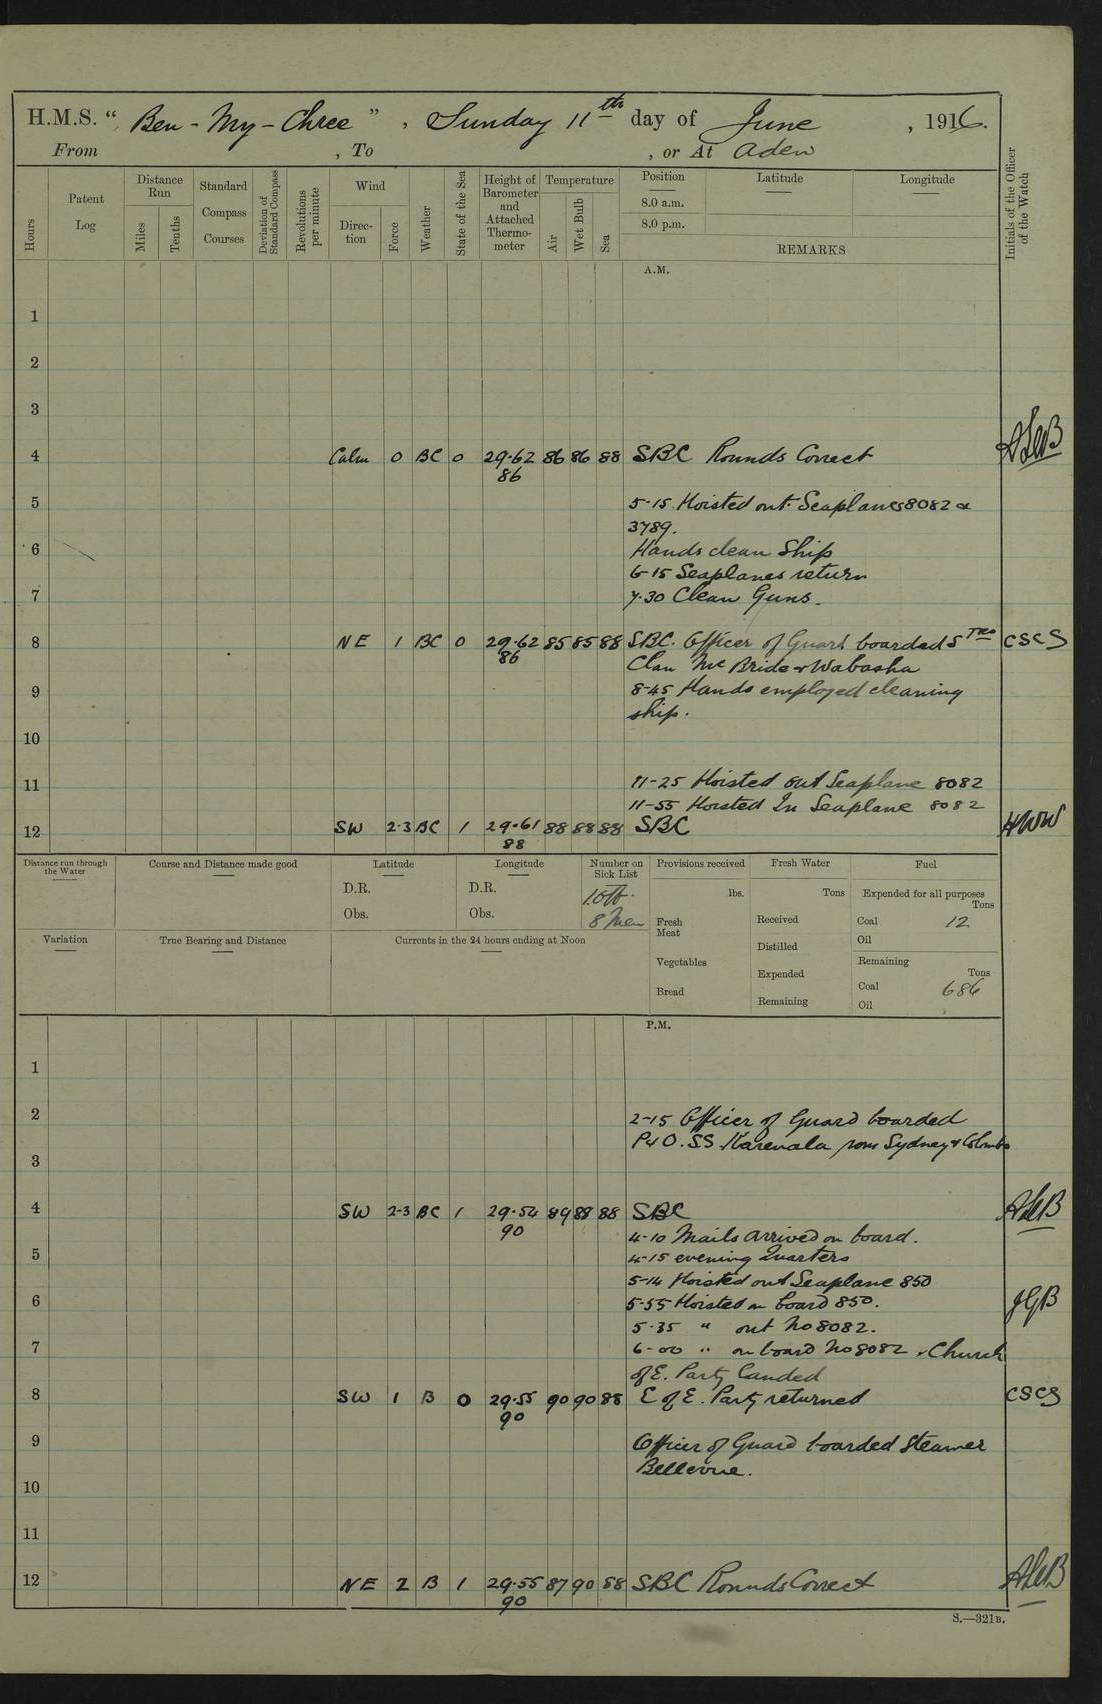 H.M.S. “ Ben-My-Chree ” , Sunday 11th day of June , 1916.
From , To , or At Aden
Hours
Patent Log
Distance Run
Miles
Tenths
Standard Compass Courses
Deviation of Standard Compass
Revolutions per minute
Wind
Direction
Force
Weather
State of the Sea
Height of Barometer and Attached Thermometer
Temperature
Air
Wet Bulb
Sea
Position
8.0 a.m.
8.0 p.m.
Latitude
Longitude
REMARKS
Initials of the Officer of the Watch
A.M.
1
2
3
4 Calm 0 BC 0 29.62 86 86 88 SBC Rounds Correct
86
5 5-15 Hoisted out Seaplanes 8082 &
3789.
6 Hands clean Ship
6-15 Seaplanes return
7 7.30 Clean Guns.
8 NE 1 BC 0 29.62 85 85 88 SBC. Officer of Guard boarded STRS CSCS
86 Clan Mc Bride & Wabasha
9 8-45 Hands employed cleaning
ship.
10
11 11-25 Hoisted out Seaplane 8082
11-55 Hoisted In Seaplane 8082
12 SW 2-3 BC 1 29.61 88 88 88 SBC HWW
88
Distance run through the Water
Course and Distance made good
Latitude
D.R.
Obs.
Longitude
D.R.
Obs.
Number on Sick List
1 Off.
8 Men
Provisions received
lbs.
Fresh Meat
Vegetables
Bread
Fresh Water
Tons
Received
Distilled
Expended
Remaining
Fuel
Expended for all purposes
Tons
Coal 12
Oil
Remaining
Tons
Coal 686
Oil
Variation
True Bearing and Distance
Currents in the 24 hours ending at Noon
P.M.
1
2 2-15 Officer of Guard boarded
P&O. SS Karmala from Sydney & Colombo
3
4 SW 2-3 BC 1 29.54 89 88 88 SBC
90 4-10 Mails arrived on board.
5 4-15 evening Quarters
5-14 Hoisted out Seaplane 850
6 5-55 Hoisted on board 850. JGB
5.35 " out No 8082.
7 6-00 " on board No 8082 . Church
of E. Party Landed
8 SW 1 B 0 29.55 90 90 88 C of E. Party returned CSCS
90
9 Officer of Guard boarded Steamer
Bellerive.
10
11
12 NE 2 B 1 29.55 87 90 88 SBC Rounds Correct
90
S.—321B.